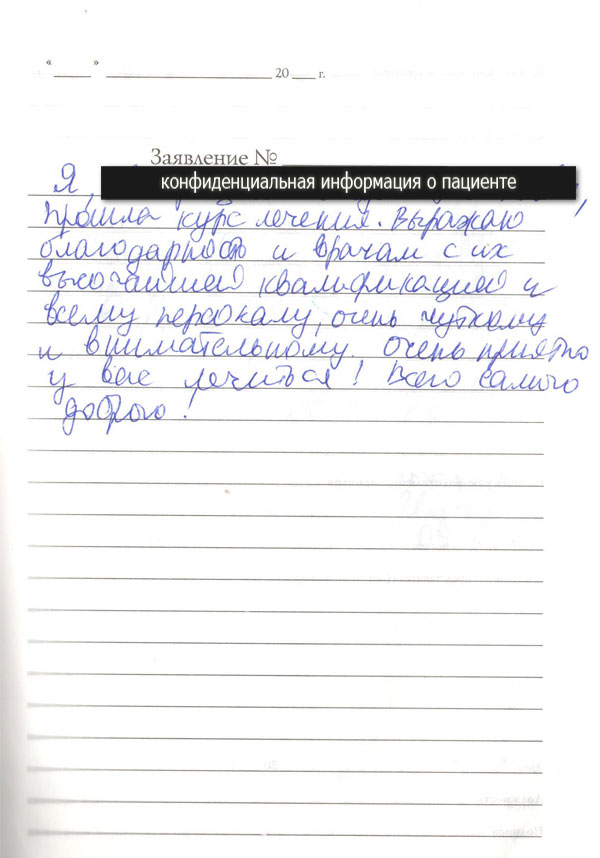 «____» ____________ 20___ г.
Заявление №
Я,
конфиденциальная информация о пациенте
прошла курс лечения. Выражаю
благодарность и врачам с их
высочайшей квалификацией и
всему персоналу, очень чуткому
и внимательному. Очень приятно
у вас лечиться! Всего самого
доброго!